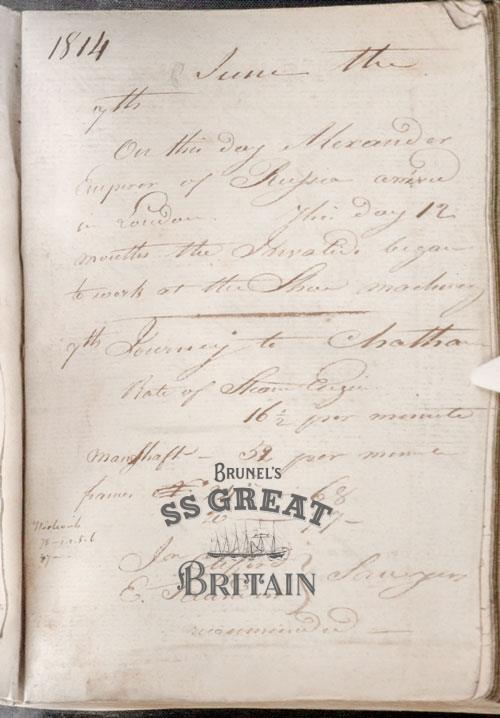 1814
June the
7th
On this day Alexander
Emperor of Russia arrived
in London. This day 12
months the Invalids began
to work at the Shoe machinery
9th Journey to Chatham
Rate of Steam Engine
16 1/2 per minute
Main shaft - 52 per minute
frames 68
BRUNEL'S
SS GREAT
BRITAIN
E. Sawyers
recommended -